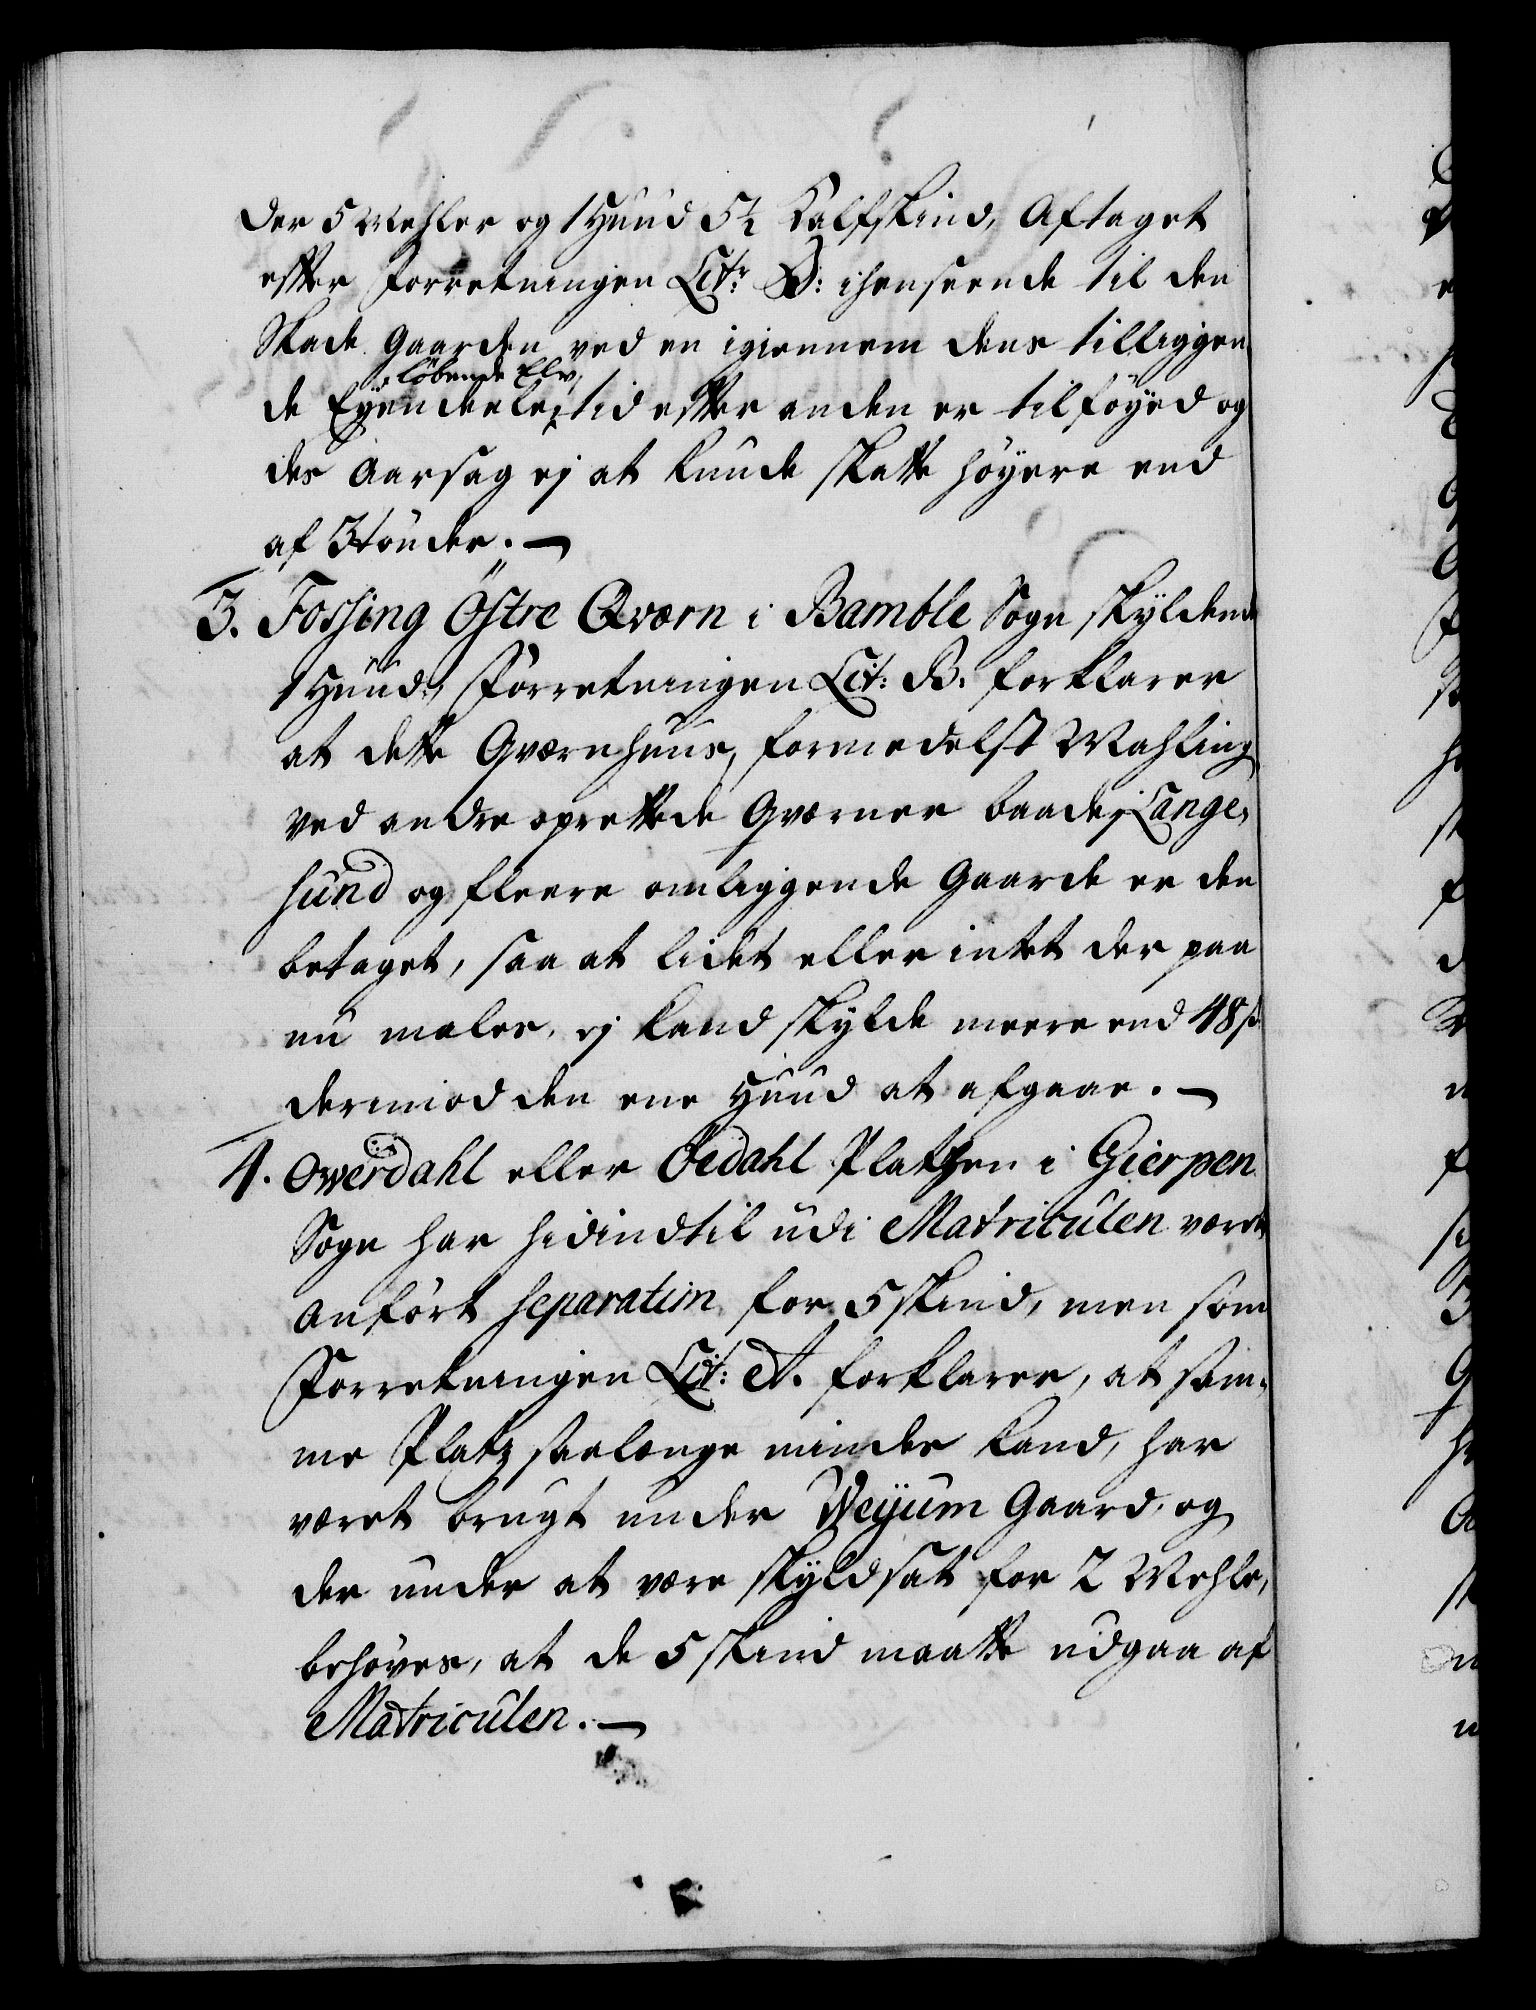 der 5 Mehler og 1 Huud 5½ Kalfskind, Aftaget
efter Forretningen Litr: D: i henseende til den
Skade Gaarden ved en igiennem dens tilliggen
löbende Elv,
de Eyendeele, tid efter anden er tilföyed og
des Aarsag ej at kunde skatte höyere end
af 3 tönder. —
3. Fossing Östre Qværn i Bamble Sogn skyldend
1 Huud, Forretningen Lit: B. forklarer
at dette Qværnhuus, formedelst Mahling
ved andre oprettede Qværner baade j Lange,
sund og fleere omliggende Gaarde er den
betaget, saa at lidet eller intet der paa
nu males, ej kand skylde meere end 48 s
dermod den ene Huud at afgaae. —
4. Owerdahl eller Öedahl Platzen i Gierpen
Sogn har hidindtil udi Matriculen været
anfört separatim for 5 skind, men som
Forretningen Lit: A. forklarer, at sam¬
me Platz saalænge mindes kand, har
været brugt under Weyum Gaard, og
der under at være skyldsat for 2 Mehle,
behöves, at de 5 skind maatte udgaa af
Matriculen. —